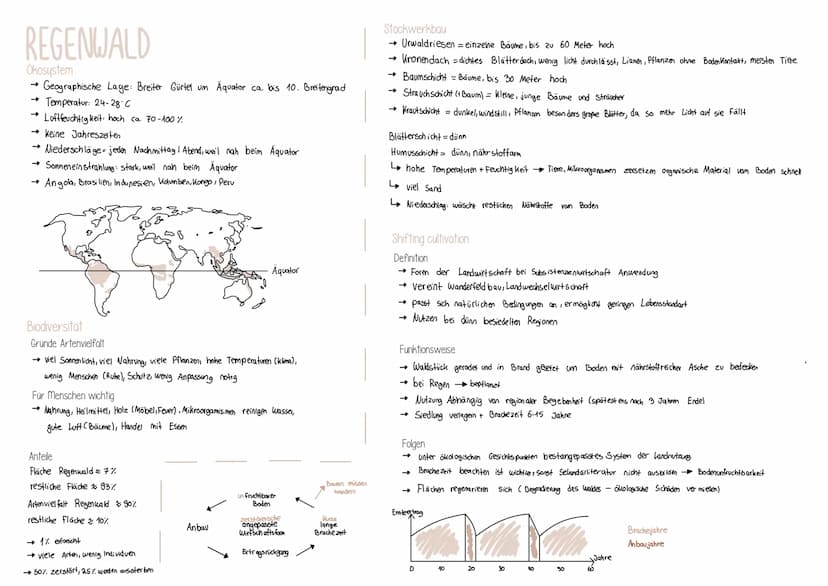 REGENWALD
Ökosystem
→ Geographische Lage: Breiter Gürtel um Äquator ca. bis 10. Breitengrad
→ Temperatur: 24-28°C
→ Luftfeuchtigkeit: hoch ca 70-100%
→ keine Jahreszeiten
→ Niederschläge = jeden Nachmittag/Abend, weil nah beim Äquator
→ Sonneneinstrahlung: stark, weil nah beim Äquator
→ Angola, Brasilien, Indonesien, Kolumbien, Kongo, Peru
Äquator
Biodiversität
Gründe Artenvielfalt
→ viel Sonnenlicht, viel Nahrung, viele Pflanzen, hohe Temperaturen (Klima),
wenig Menschen (Ruhe), Schutz, wenig Anpassung nötig
Für Menschen wichtig
→ Nahrung, Heilmittel, Holz (Möbel, Feuer), Mikroorganismen reinigen Wasser,
gute Luft (Bäume), Handel mit Essen
Anteile
Fläche Regenwald ≈ 7%
restliche Fläche ≈ 93%
Artenvielfalt Regenwald ≈ 90%
restliche Fläche ≈ 10%
→ 1% erforscht
→ viele Arten, wenig Individuen
→ 50% zerstört, 25% werden aussterben
Anbau
unfruchtbarer
Boden
zerstörerische
angepasste
Wirtschaftsform
Ertragsrückgang
Bauern müssen
wandern
kurze
lange
Brachezeit
Stockwerkbau
→ Urwaldriesen = einzelne Bäume, bis zu 60 Meter hoch
→ Kronendach = dichtes Blätterdach, wenig licht durchlässt, Lianen, Pflanzen ohne Bodenkontakt, meisten Tiere
→ Baumschicht = Bäume, bis 30 Meter hoch
→ Strauchschicht (1 Baum) = kleine, junge Bäume und Sträucher
→ Krautschicht = dunkel, windstill, Pflanzen besonders große Blätter, da so mehr Licht auf sie fällt
Blätterschicht = dünn
Humusschicht = dünn, nährstoffarm
↳ hohe Temperaturen + Feuchtigkeit → Tiere, Mikroorganismen zersetzen organische Material vom Boden schnell
↳ viel Sand
↳ Niederschlag: wäscht restlichen Nährstoffe vom Boden
Shifting cultivation
Definition
→ Form der Landwirtschaft bei Subsistenzwirtschaft Anwendung
→ vereint Wanderfeldbau, Landwechselwirtschaft
→ passt sich natürlichen Bedingungen an, ermöglicht geringen Lebensstandart
→ Nutzen bei dünn besiedelten Regionen
Funktionsweise
→ Waldstück gerodet und in Brand gesetzt um Boden mit nährstoffreicher Asche zu bedecken
→ bei Regen → bepflanzt
→ Nutzung Abhängig von regionaler Begebenheit (spätestens nach 3 Jahren Ende)
→ Siedlung verlagern + Brachezeit 6-15 Jahre
Folgen
→ unter ökologischen Gesichtspunkten bestangepasstes System der Landnutzung
→ Brachezeit beachten ist wichtig, sonst Sekundärliteratur nicht ausbilden → Bodenunfruchtbarkeit
→ Flächen regenerieren sich (Degradierung des Waldes - ökologische Schäden vermieden)
Ernteertrag
0 10 20 30 40 50 60 Jahre
Brachejahre
Anbaujahre